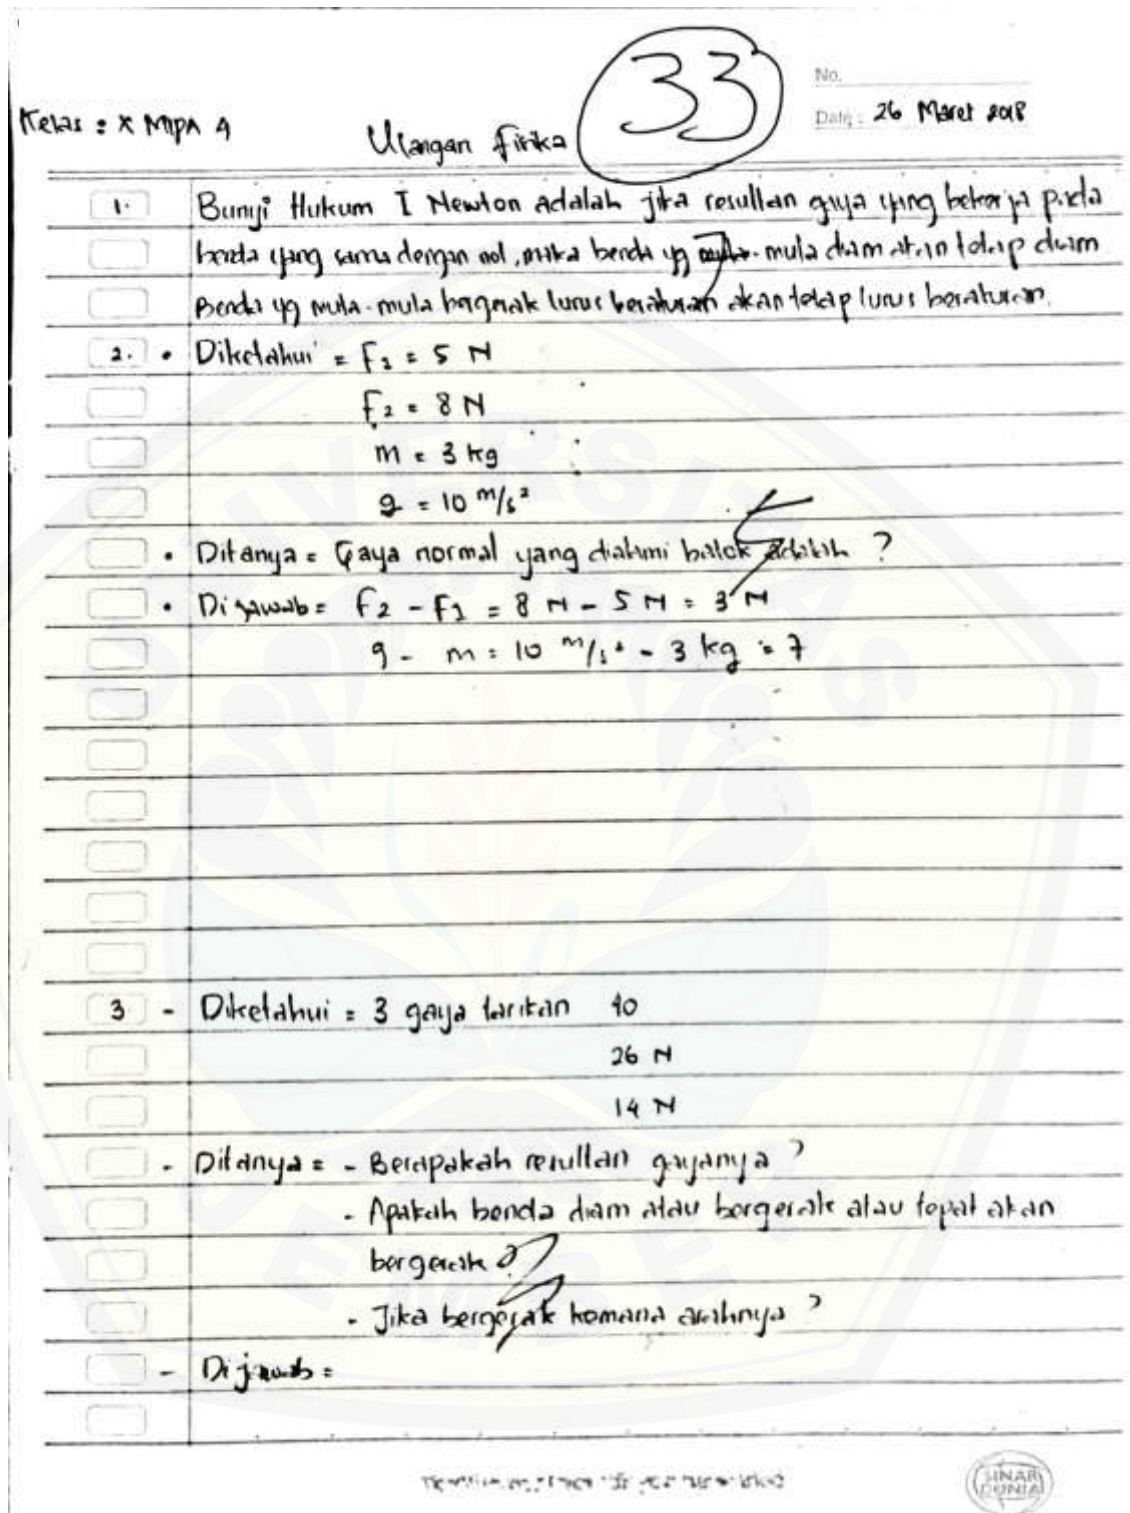 33
No.
Kelas : X MIPA 4
Date : 26 Maret 2018
Ulangan Fisika
1. Bunyi Hukum I Newton adalah jika resultan gaya yang bekerja pada
benda yang sama dengan nol, maka benda yg mula-mula diam akan tetap diam
Benda yg mula-mula bergerak lurus beraturan akan tetap lurus beraturan.
2. • Diketahui = F1 = 5 N
F2 = 8 N
m = 3 kg
g = 10 m/s²
• Ditanya = Gaya normal yang dialami balok adalah ?
• Dijawab = F2 - F1 = 8 N - 5 N = 3 N
g - m = 10 m/s² - 3 kg = 7
3 - Diketahui = 3 gaya tarikan 40
26 N
14 N
- Ditanya = - Berapakah resultan gayanya ?
- Apakah benda diam atau bergerak atau tepat akan
bergerak ?
- Jika bergerak kemana arahnya ?
- Dijawab =
SINAR
DUNIA
UNIVERSITAS
JEMBER